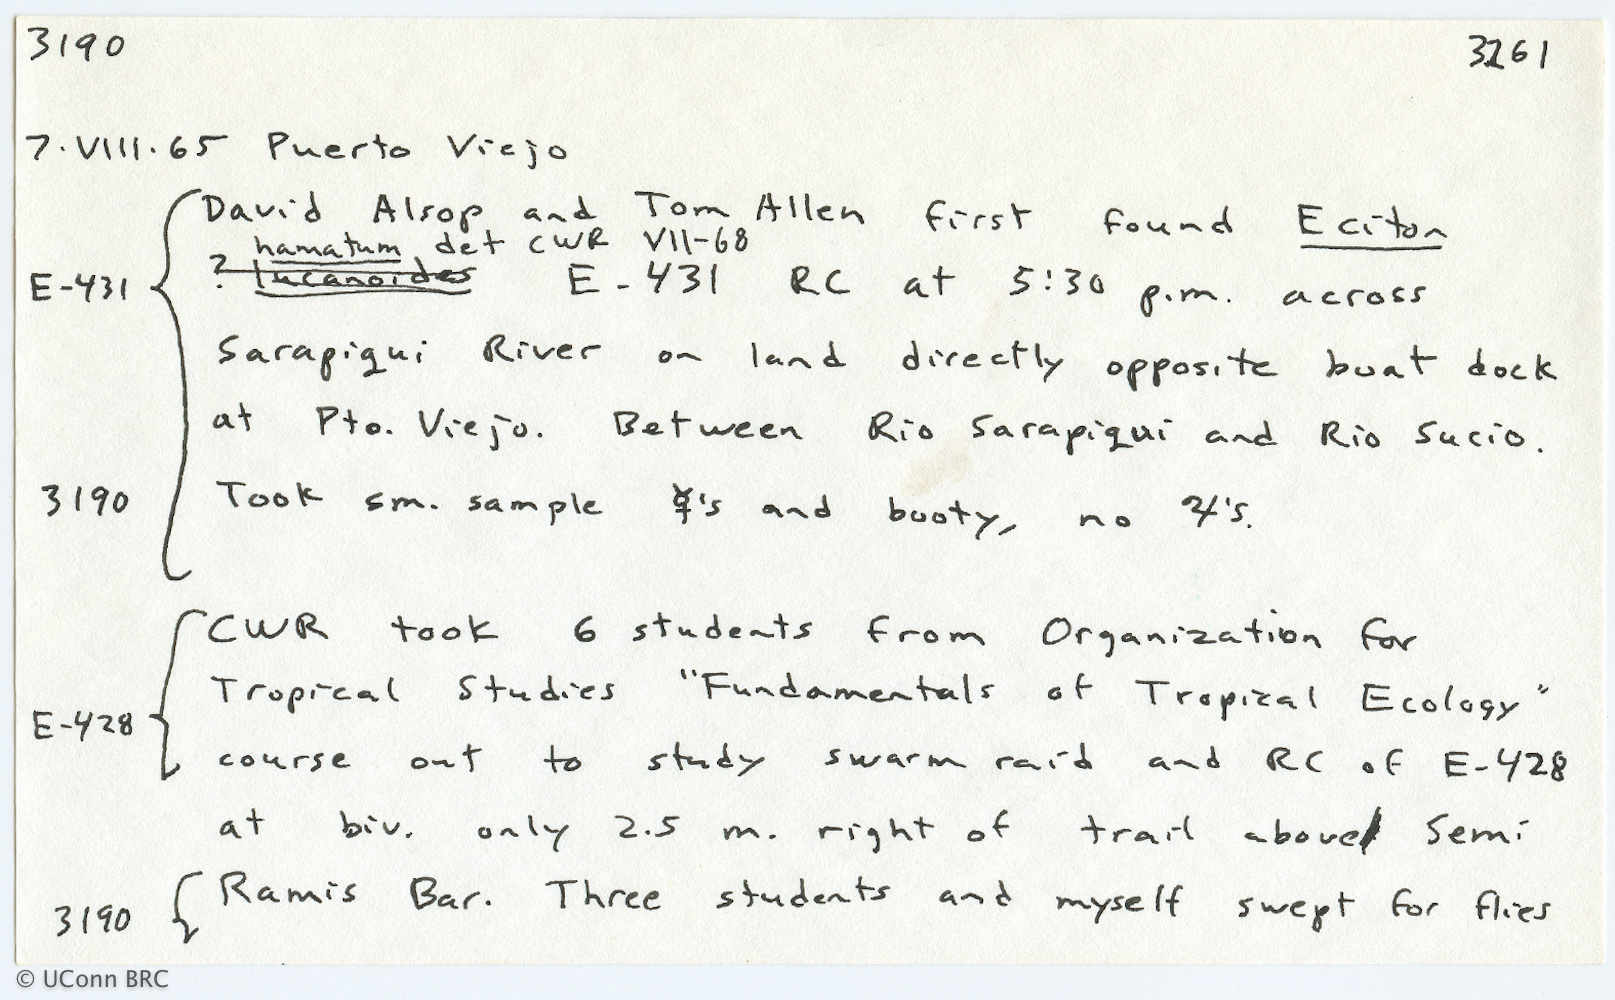 3190 3261
7.VIII.65 Puerto Viejo
David Alsop and Tom Allen first found Eciton
hamatum det CWR VII-68
E-431 ? lucanoides E-431 RC at 5:30 p.m. across
Sarapiqui River on land directly opposite boat dock
at Pto. Viejo. Between Rio Sarapiqui and Rio Sucio.
3190 Took sm. sample ☿'s and booty, no ♃'s.
CWR took 6 students from Organization for
Tropical Studies "Fundamentals of Tropical Ecology"
E-428 course out to study swarm raid and RC of E-428
at biv. only 2.5 m. right of trail above Semi
3190 Ramis Bar. Three students and myself swept for flies
© UConn BRC